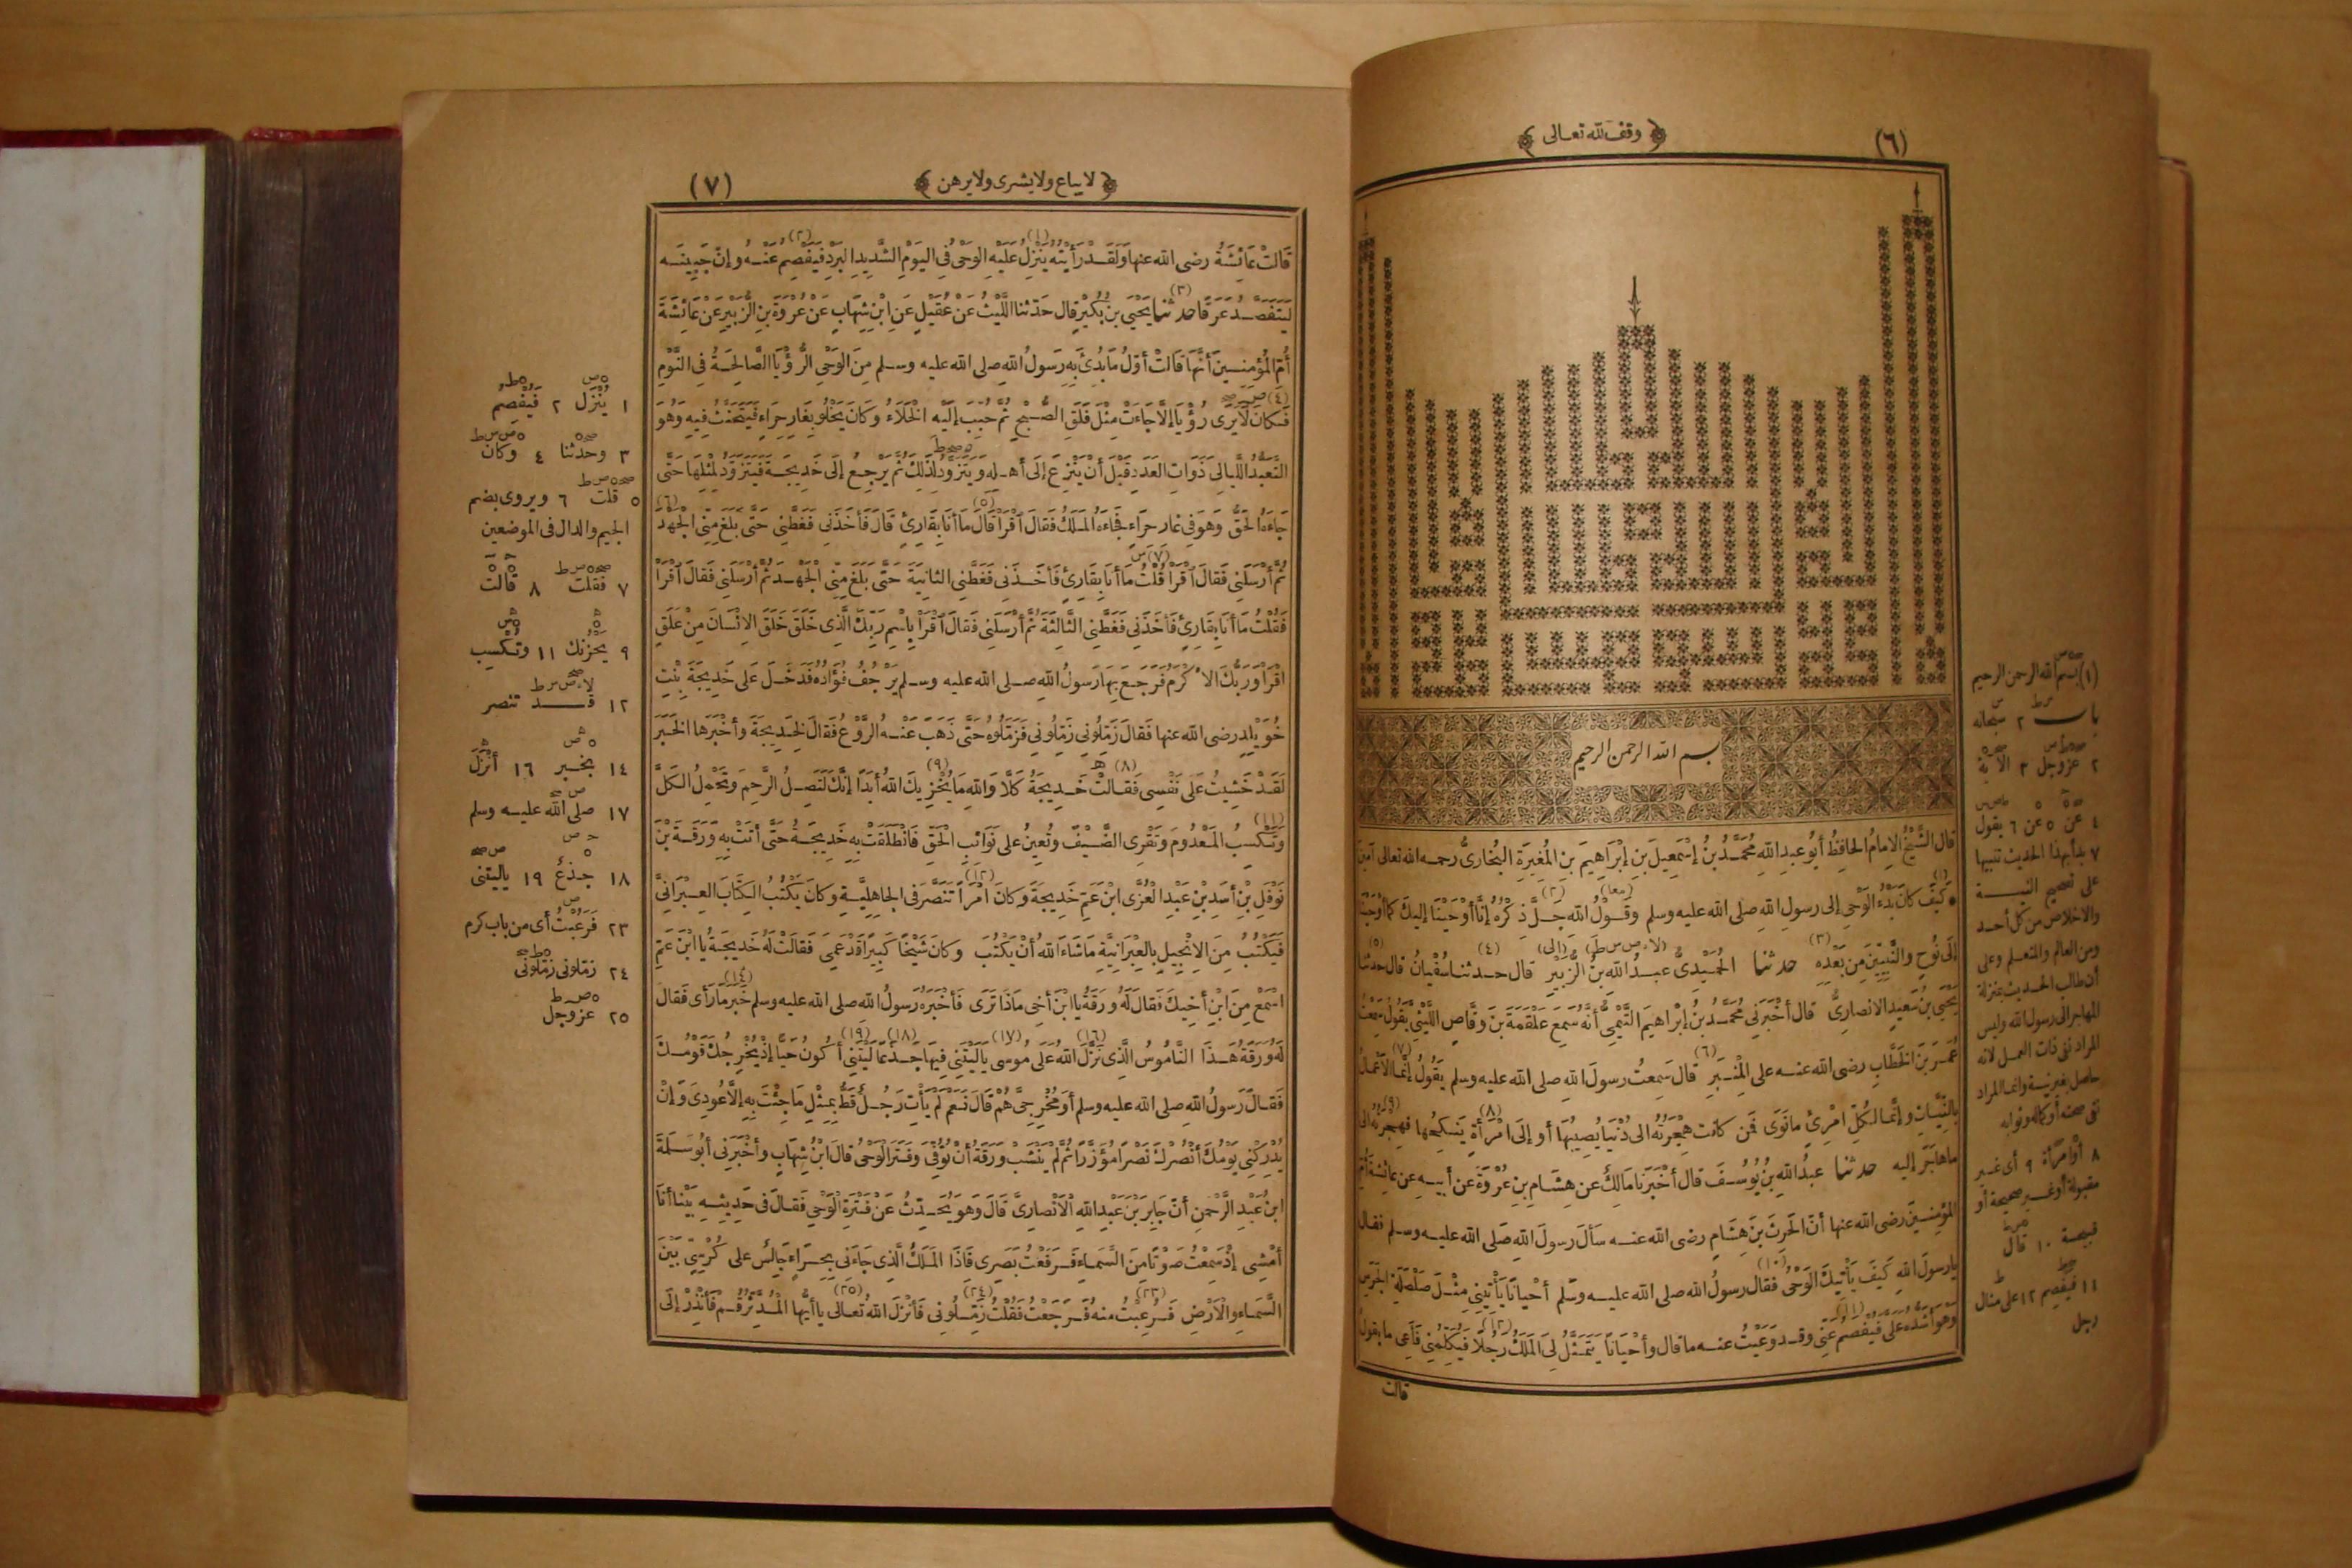 (٦)
﴿ وقف لله تعالى ﴾
بسم الله الرحمن الرحيم
قال الشَّيْخُ الإِمامُ الحافِظُ أبُو عبدِ اللهِ مُحَمَّدُ بْنُ إسْمَعِيلَ بنِ إبْرَاهِيمَ بنِ المُغِيرَةِ البُخارِىُّ رحمه الله تعالى آمين
كَيْفَ كانَ بَدْءُ الوَحْىِ إلى رسولِ اللهِ صلى الله عليه وسلم وقَوْلُ الله جلَّ ذِكْرُهُ إنَّا أوْحَيْنَا إليكَ كما أوْحَيْنَا
إلَى نُوحٍ والنَّبِيِّينَ مِن بَعْدِهِ حدثنا الحُمَيْدِىُّ عبدُ اللهِ بنُ الزُّبَيْرِ قال حدثنا سُفْيانُ قال حدثنا
يَحْيَى بنُ سَعِيدٍ الانصارِىُّ قال أخْبَرَنِى مُحَمَّدُ بْنُ إبْراهِيمَ التَّيْمِىُّ أنَّهُ سَمِعَ عَلْقَمَةَ بنَ وقَّاصٍ اللَّيْثِىَّ يَقُولُ سَمِعْتُ
عُمَرَ بنَ الخَطَّابِ رضى الله عنه على المِنْبَرِ قال سَمِعتُ رسولَ اللهِ صلى الله عليه وسلم يَقُولُ إنَّما الأعْمالُ
بِالنِّيَّاتِ وإنَّما لِكُلِّ امْرِئٍ ما نَوَى فَمن كانت هِجْرَتُهُ الى دُنْيَا يُصِيبُها أو إلَى امْرَأةٍ يَنْكِحُها فهِجْرَتُهُ إلى
ما هاجَرَ إليه حدثنا عبدُ اللهِ بنُ يُوسُفَ قال أخْبَرَنا مالِكٌ عن هِشَامِ بنِ عُرْوَةَ عن أبيهِ عن عائِشَةَ أُمِّ
المُؤمِنِينَ رضى الله عنها أنَّ الحَرِثَ بنَ هِشَامٍ رضى الله عنه سألَ رسولَ اللهِ صلى الله عليه وسلم فقال
يا رسولَ اللهِ كَيْفَ يَأْتِيكَ الوَحْىُ فقال رسولُ الله صلى الله عليه وسلم أحْيانًا يَأْتِينِى مِثْلَ صَلْصَلَةِ الجَرَسِ
وهْوَ أشَدُّهُ عَلَىَّ فيَفْصِمُ عَنِّى وقد وَعَيْتُ عنه ما قال وأحْيَانًا يَتَمَثَّلُ لِىَ المَلَكُ رَجُلًا فَيُكَلِّمُنِى فَأعِى ما يقولُ
قالت
(١) بسم الله الرحمن الرحيم
باب ٢ سبحانه
٢ عزوجل ٣ الآية
٤ عن ٥ عن ٦ يقول
٧ بدأ بهذا الحديث تنبيها
على تصحيح النية
والاخلاص من كل أحد
ومن العالم والمتعلم وعلى
أن طالب الحديث بمنزلة
المهاجر الى رسول الله وليس
المراد نفى ذات العمل لانه
حاصل بغير نية وانما المراد
نفى صحته أو كماله وثوابه
٨ أو امرأة ٩ أى غير
مقبولة أو غير صحيحة أو
قبيحة ١٠ قال
١١ فيفصم ١٢ على مثال
رجل
(٧)
﴿ لا يباع ولا يشرى ولا يرهن ﴾
قَالَتْ عَائِشَةُ رضى الله عنها ولَقَدْ رَأَيْتُهُ يَنْزِلُ عَلَيْهِ الوَحْىُ فِى اليَوْمِ الشَّدِيدِ البَرْدِ فَيَفْصِمُ عَنْهُ وإنَّ جَبِينَه
لَيَتَفَصَّدُ عَرَقًا حدثنا يَحْيَى بنُ بُكَيْرٍ قال حَدّثنا اللَّيْثُ عَنْ عُقَيْلٍ عَنِ ابْنِ شِهَابٍ عَنْ عُرْوَةَ بنِ الزُّبَيْرِ عَنْ عَائِشَةَ
أُمِّ المُؤْمِنِينَ أنَّها قَالَتْ أوّلُ ما بُدِئَ بِهِ رَسولُ اللهِ صلى الله عليه وسلم مِنَ الوَحْىِ الرُّؤْيَا الصَّالِحَةُ فِى النَّوْمِ
فَكانَ لا يَرَى رُؤْيَا إلَّا جَاءَتْ مِثْلَ فَلَقِ الصُّبْحِ ثُمَّ حُبِّبَ إلَيْهِ الخَلَاءُ وكَانَ يَخْلُو بِغَارِ حِرَاءٍ فَيَتَحَنَّثُ فِيهِ وَهُوَ
التَّعَبُّدُ اللَّيالِىَ ذَوَاتِ العَدَدِ قَبْلَ أنْ يَنْزِعَ إلَى أهْلِهِ وَيَتَزَوَّدُ لِذَلِكَ ثُمَّ يَرْجِعُ إلَى خَدِيجَةَ فَيَتَزَوَّدُ لِمِثْلِهَا حَتَّى
جَاءَهُ الحَقُّ وَهُوَ فِى غَارِ حِرَاءٍ فَجَاءَهُ المَلَكُ فَقالَ اقْرَأْ قَالَ ما أنا بِقَارِئٍ قَالَ فَأَخَذَنِى فَغَطَّنِى حَتَّى بَلَغَ مِنِّى الجَهْدَ
ثُمَّ أرْسَلَنِى فَقالَ اقْرَأْ قُلْتُ ما أنا بِقَارِئٍ فَأَخَذَنِى فَغَطَّنِى الثانِيَةَ حَتَّى بَلَغَ مِنِّى الجَهْدَ ثُمَّ أرْسَلَنِى فَقالَ اقْرَأْ
فَقُلْتُ ما أنا بِقَارِئٍ فَأَخَذَنِى فَغَطَّنِى الثَّالِثَةَ ثُمَّ أرْسَلَنِى فَقالَ اقْرَأْ بِاسْمِ رَبِّكَ الَّذِى خَلَقَ خَلَقَ الإنْسَانَ مِنْ عَلَقٍ
اقْرَأْ وَرَبُّكَ الأكْرَمُ فَرَجَعَ بِهَا رَسولُ اللهِ صلى الله عليه وسلم يَرْجُفُ فُؤَادُهُ فَدَخَلَ عَلَى خَدِيجَةَ بِنْتِ
خُوَيْلِدٍ رضى الله عنها فَقالَ زَمِّلُونِى زَمِّلُونِى فَزَمَّلُوهُ حَتَّى ذَهَبَ عَنْهُ الرَّوْعُ فَقالَ لِخَدِيجَةَ وأخْبَرَها الخَبَرَ
لَقَدْ خَشِيتُ عَلَى نَفْسِى فَقالَتْ خَدِيجَةُ كَلَّا وَاللهِ ما يُخْزِيكَ اللهُ أبَدًا إنَّكَ لَتَصِلُ الرَّحِمَ وتَحْمِلُ الكَلَّ
وَتَكْسِبُ المَعْدُومَ وَتَقْرِى الضَّيْفَ وتُعِينُ على نَوَائِبِ الحَقِّ فَانْطَلَقَتْ بِهِ خَدِيجَةُ حَتَّى أتَتْ بِهِ وَرَقَةَ بْنَ
نَوْفَلِ بْنِ أسَدِ بْنِ عَبْدِ العُزَّى ابْنَ عَمِّ خَدِيجَةَ وكانَ امْرَأً تَنَصَّرَ فى الجاهِلِيَّةِ وكانَ يَكْتُبُ الكِتَابَ العِبْرَانِىَّ
فَيَكْتُبُ مِنَ الإنْجِيلِ بِالعِبْرَانِيَّةِ ما شَاءَ اللهُ أنْ يَكْتُبَ وكانَ شَيْخًا كَبِيرًا قَدْ عَمِىَ فَقالَتْ لَهُ خَدِيجَةُ يا ابْنَ عَمِّ
اسْمَعْ مِنَ ابْنِ أخِيكَ فَقالَ لَهُ وَرَقَةُ يا ابْنَ أخِى ماذَا تَرَى فَأَخْبَرَهُ رَسولُ اللهِ صلى الله عليه وسلم خَبَرَ ما رَأى فَقالَ
لَهُ وَرَقَةُ هَذَا النَّامُوسُ الَّذِى نَزَّلَ اللهُ عَلَى مُوسى يَا لَيْتَنِى فِيهَا جَذَعًا لَيْتَنِى أكُونُ حَيًّا إذْ يُخْرِجُكَ قَوْمُكَ
فَقالَ رَسولُ اللهِ صلى الله عليه وسلم أَوَ مُخْرِجِىَّ هُمْ قَالَ نَعَمْ لَمْ يَأْتِ رَجُلٌ قَطُّ بِمِثْلِ ما جِئْتَ بِهِ إلَّا عُودِىَ وَإنْ
يُدْرِكْنِى يَوْمُكَ أنْصُرْكَ نَصْرًا مُؤَزَّرًا ثُمَّ لَمْ يَنْشَبْ وَرَقَةُ أنْ تُوُفِّىَ وفَتَرَ الوَحْىُ قالَ ابْنُ شِهَابٍ وأخْبَرَنِى أبُو سَلَمَةَ
ابنُ عَبْدِ الرَّحْمَنِ أنَّ جَابِرَ بْنَ عَبْدِ اللهِ الأنْصارِىَّ قَالَ وَهوَ يُحَدِّثُ عَنْ فَتْرَةِ الوَحْىِ فَقالَ فى حَدِيثِهِ بَيْنَا أنَا
أمْشِى إذْ سَمِعْتُ صَوْتًا مِنَ السَّماءِ فَرَفَعْتُ بَصَرِى فَإذَا المَلَكُ الَّذِى جَاءَنِى بِحِرَاءٍ جَالِسٌ على كُرْسِىٍّ بَيْنَ
السَّماءِ والأرْضِ فَرُعِبْتُ منه فَرَجَعْتُ فَقُلْتُ زَمِّلُونِى فَأنْزَلَ اللهُ تَعالَى يا أيُّها المُدَّثِّرُ قُمْ فَأنْذِرْ إلَى
١ يُنْزَلُ ٢ فَيُفْصَمُ
٣ وحدثنا ٤ وكان
٥ قلت ٦ ويروى بضم
الجيم والدال فى الموضعين
٧ فقلت ٨ قالت
٩ يَحْزُنك ١١ وتُكْسِب
١٢ قد تنصر
١٤ بخبر ١٦ أُنْزِلَ
١٧ صلى الله عليه وسلم
١٨ جذعٌ ١٩ ياليتنى
٢٣ فَرَعُبْتُ أى من باب كرم
٢٤ زملونى زملونى
٢٥ عز وجل